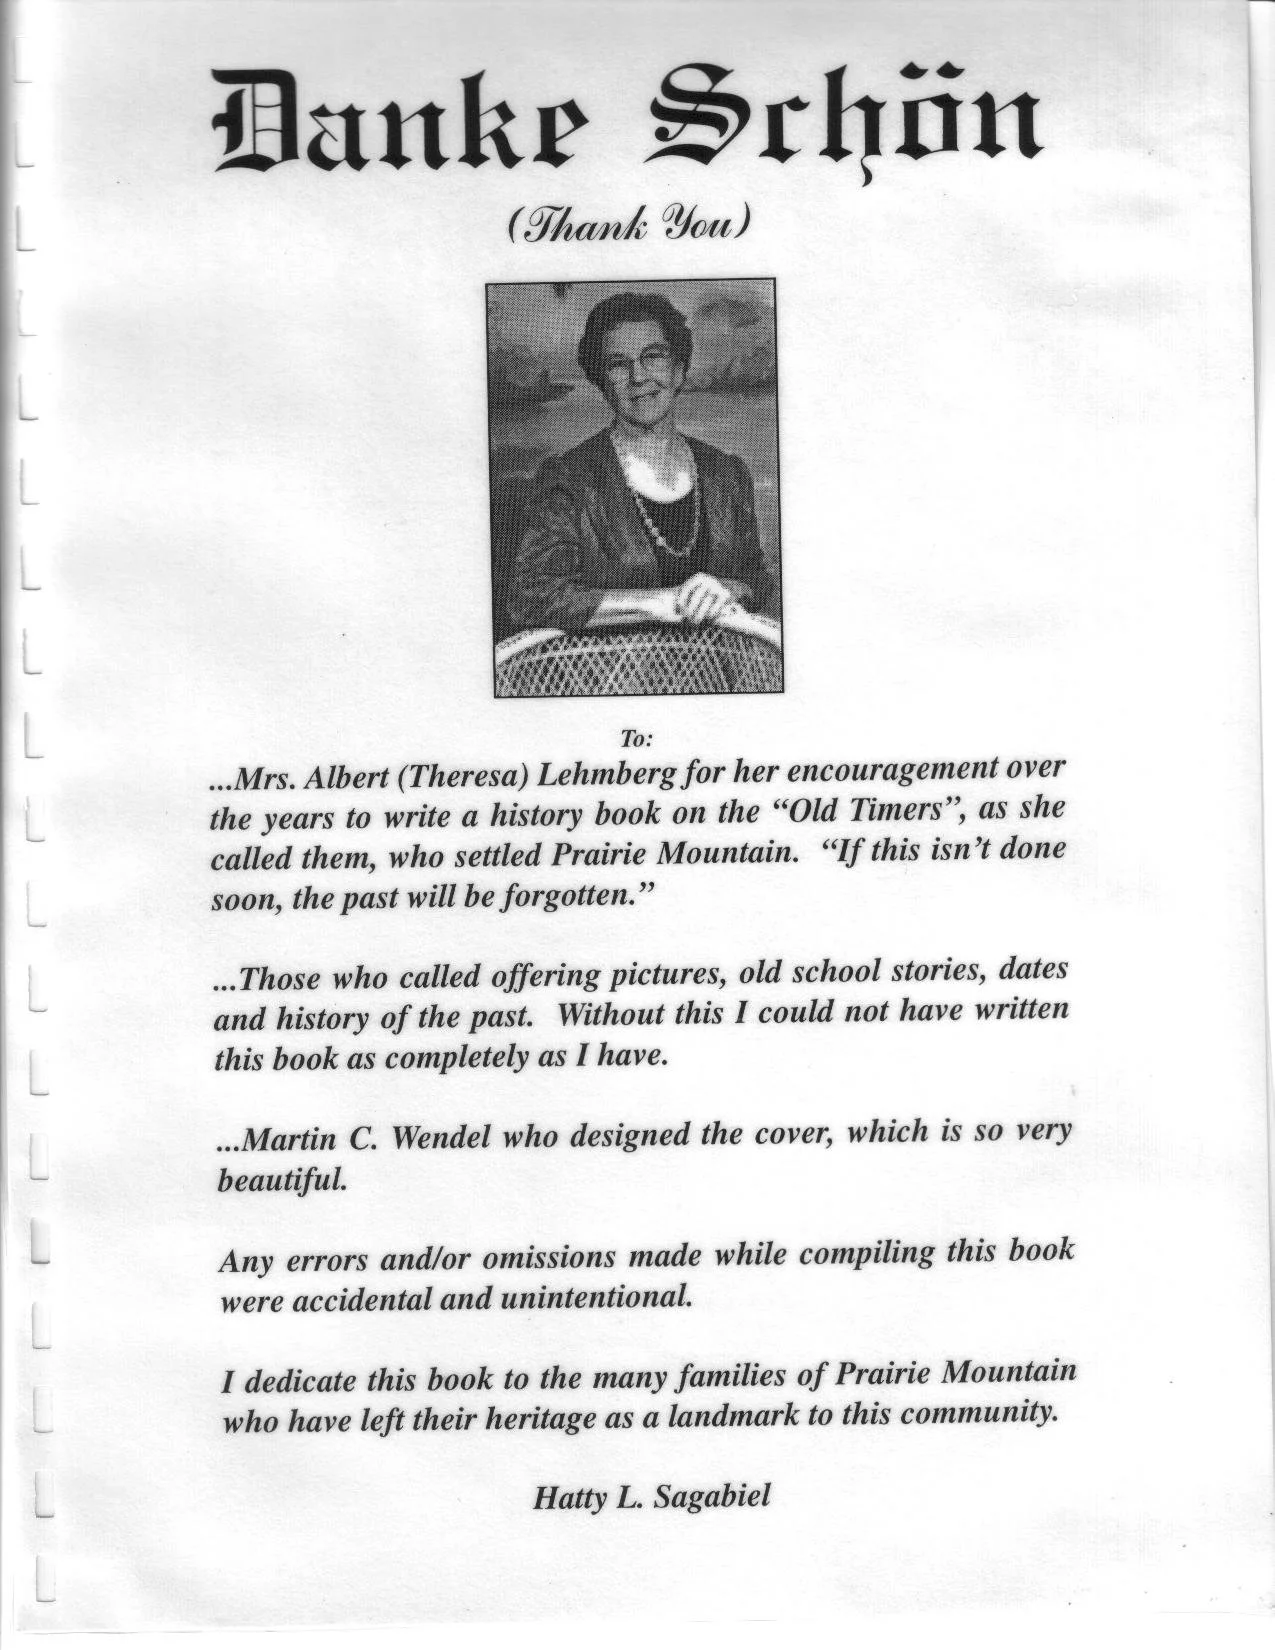 Danke Schön
(Thank You)
To:
...Mrs. Albert (Theresa) Lehmberg for her encouragement over
the years to write a history book on the “Old Timers”, as she
called them, who settled Prairie Mountain.  “If this isn’t done
soon, the past will be forgotten.”
...Those who called offering pictures, old school stories, dates
and history of the past.  Without this I could not have written
this book as completely as I have.
...Martin C. Wendel who designed the cover, which is so very
beautiful.
Any errors and/or omissions made while compiling this book
were accidental and unintentional.
I dedicate this book to the many families of Prairie Mountain
who have left their heritage as a landmark to this community.
Hatty L. Sagabiel